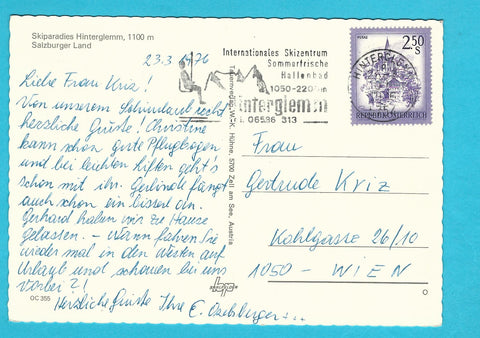 Skiparadies Hinterglemm, 1100 m
Salzburger Land
23.3.1976
Liebe Frau Kriz!
Von unserem Schiurlaub recht
herzliche Grüße! Christine
kann schon gute Pflugbogen
und bei leichten Liften geht's
schon mit ihr. Gerlinde fängt
auch schon ein bisserl an.
Gerhard haben wir zu Hause
gelassen. - Wann fahren Sie
wieder mal in den Westen auf
Urlaub und schauen bei uns
vorbei?!
Herzliche Grüße Ihre E.
OC 355
Internationales Skizentrum
Sommerfrische
Hallenbad
1050-2200m
Hinterglemm
06536 313
HINTERGLEMM
2.50
S
REPUBLIK ÖSTERREICH
Hühne, 5700 Zell am See, Austria
Frau
Gertrude Kriz
Kohlgasse 26/10
1050 - WIEN